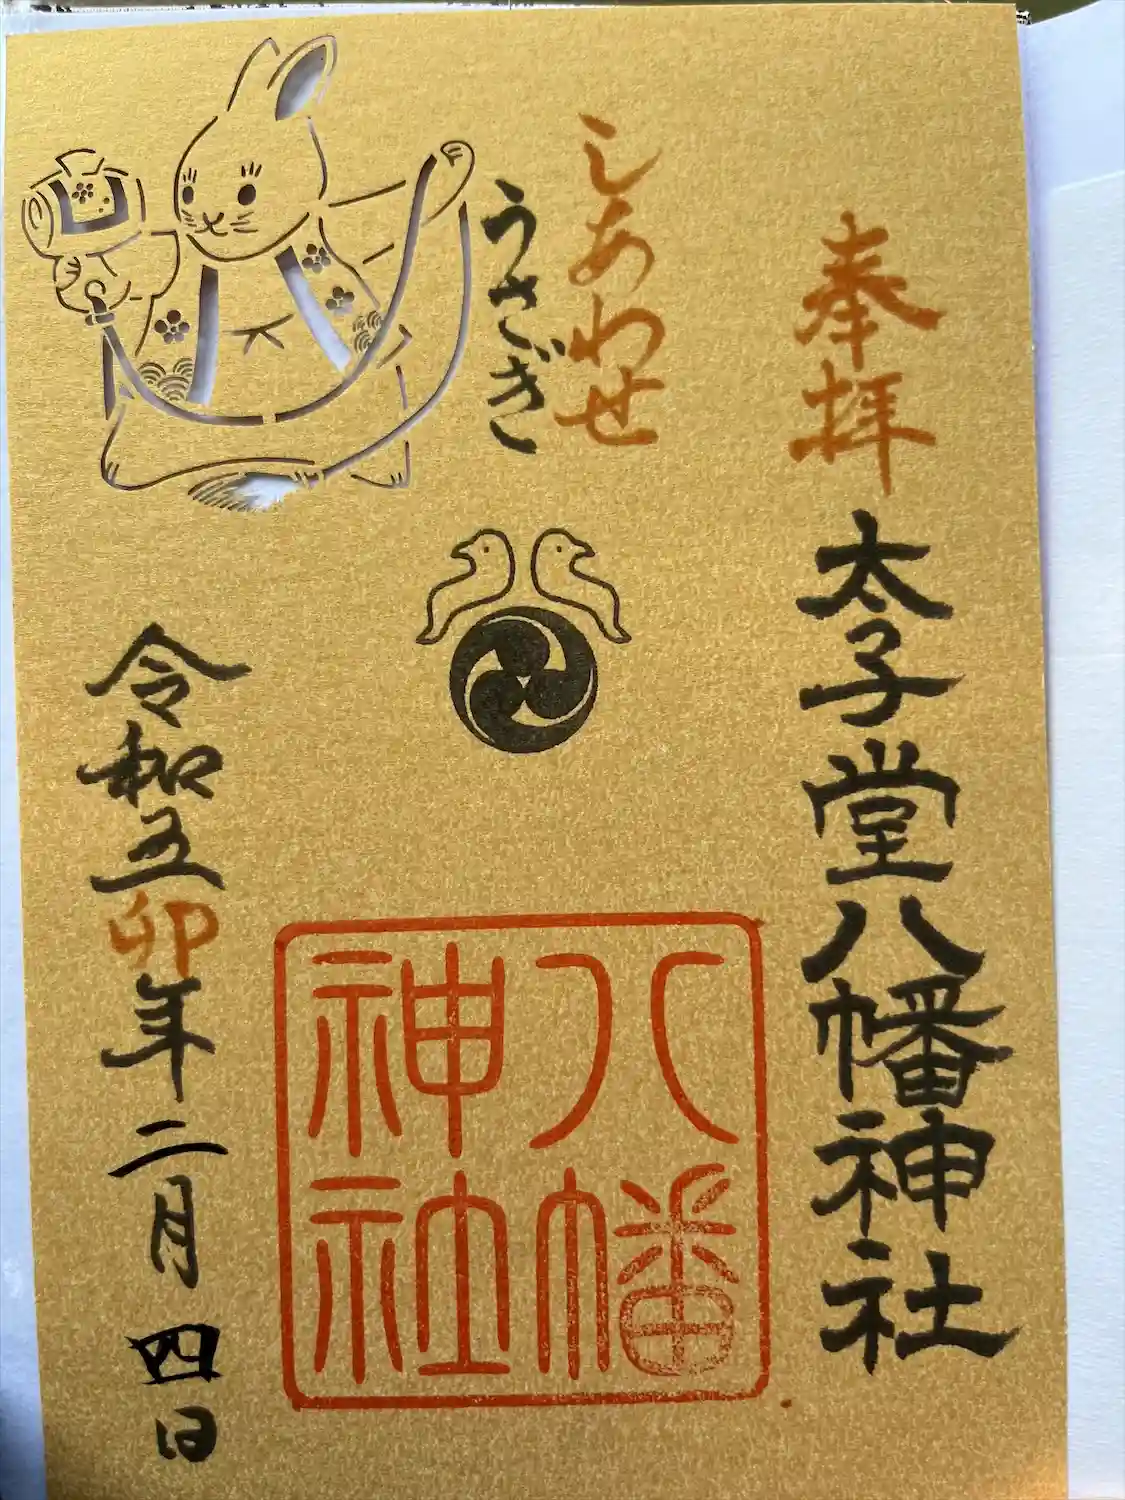 奉拝
太子堂八幡神社
しあわせ
うさぎ
八幡
神社
令和五卯年二月四日